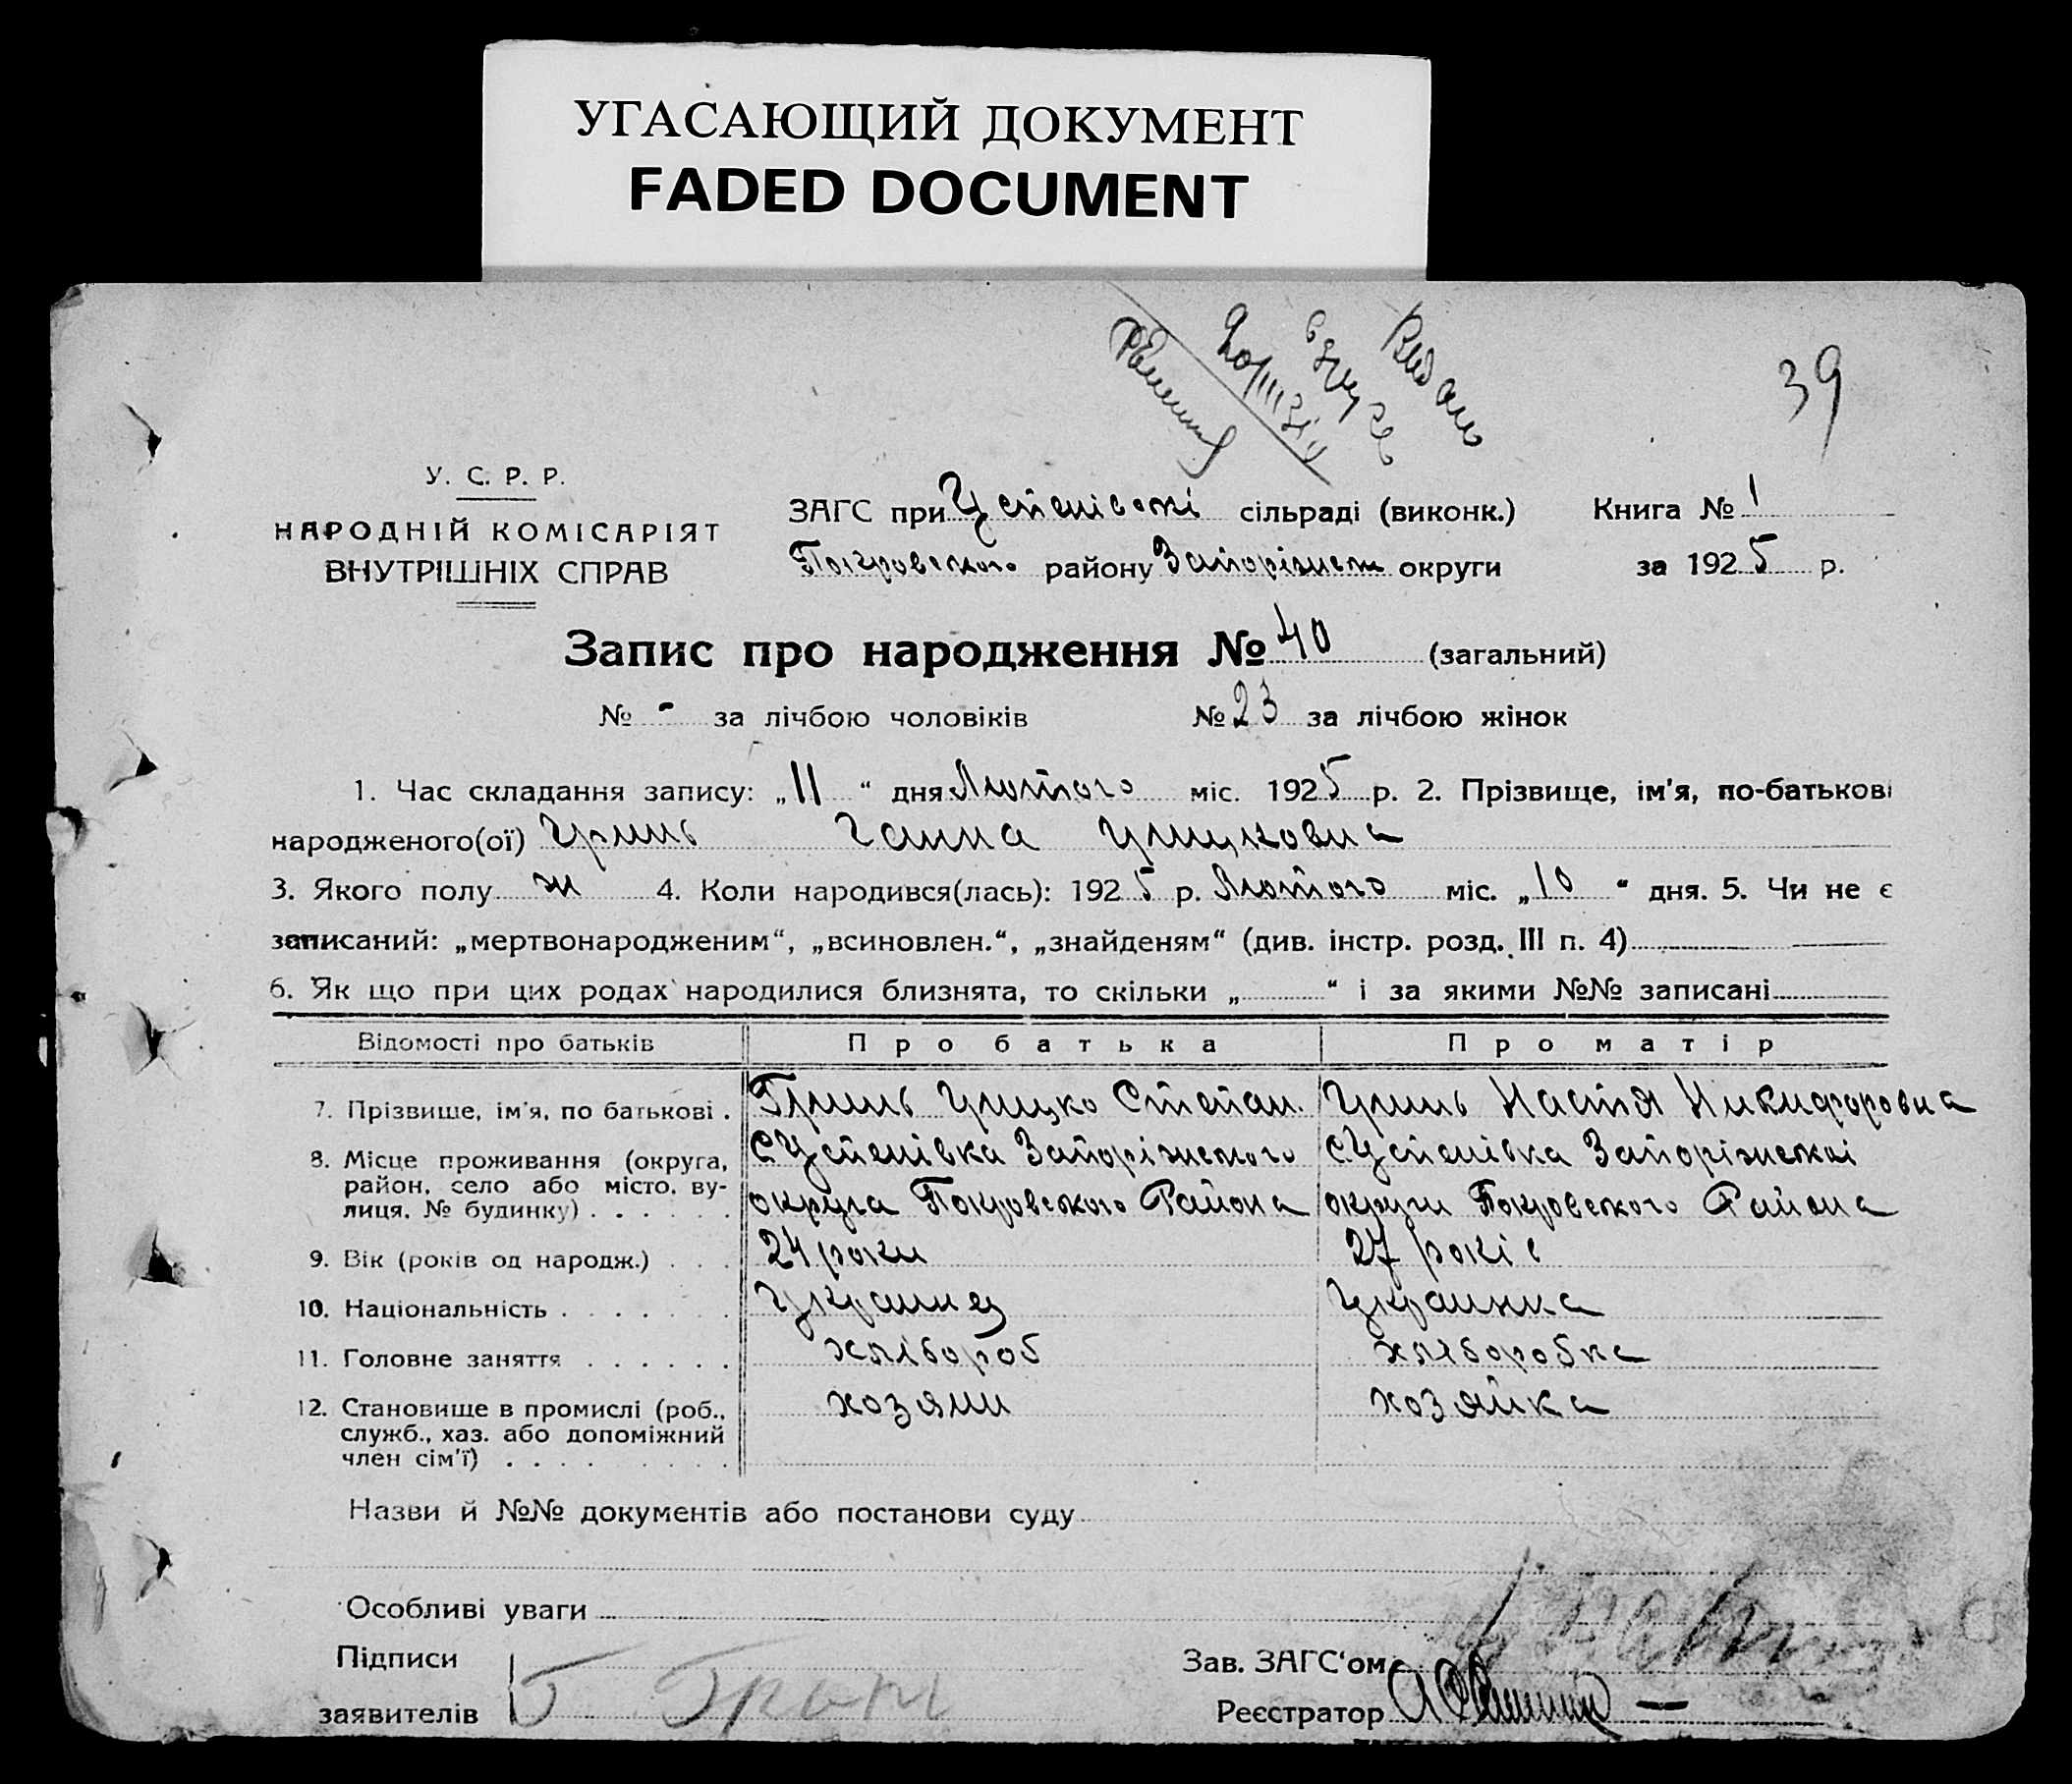 УГАСАЮЩИЙ ДОКУМЕНТ
FADED DOCUMENT
39
У. С. Р. Р.
НАРОДНІЙ КОМІСАРІЯТ
ВНУТРІШНІХ СПРАВ
ЗАГС при Успенівскі сільраді (виконк.) Книга № 1
Покровського району Запоріжськ округи за 1925 р.
Запис про народження № 40 (загальний)
№ - за лічбою чоловіків № 23 за лічбою жінок
1. Час складання запису: „11“ дня Лютого міс. 1925 р. 2. Прізвище, ім'я, по-батькові
народженого(ої) Гринь Ганна Грицковна
3. Якого полу ж 4. Коли народився(лась): 1925 р. Лютого міс. „10“ дня. 5. Чи не є
записаний: „мертвонародженим“, „всиновлен.“, „знайденям“ (див. інстр. розд. III п. 4)
6. Як що при цих родах народилися близнята, то скільки „ “ і за якими №№ записані
Відомості про батьків Про батька Про матір
7. Прізвише, ім'я, по батькові . Гринь Грицко Степан. Гринь Настя Никифоровна
8. Місце проживання (округа, с Успенівка Запоріжського с Успенівка Запоріжській
район, село або місто, ву-
лиця, № будинку) . . . . . . округа Покровського Района округи Покровського Района
9. Вік (років од народж.) . . . 24 роки 27 років
10. Національність . . . . . . . Украинец Украинка
11. Головне заняття . . . . . . хлібороб хлеборобка
12. Становище в промислі (роб., хозяин хозяйка
служб., хаз. або допоміжний
член сім'ї) . . . . . . . . .
Назви й №№ документів або постанови суду
Особливі уваги
Підписи
заявителів
Зав. ЗАГС‘ом
Реєстратор